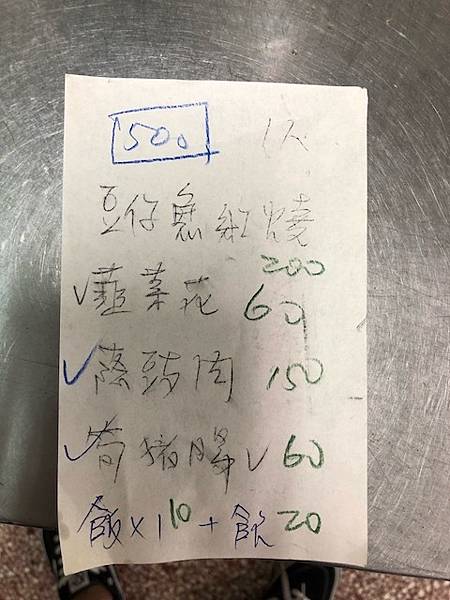 500 1人
豆仔魚紅燒
200
✓韮菜花 60
✓蔭豉肉 150
✓ 猪腳 ✓ 60
飯×1 10 + 飲 20